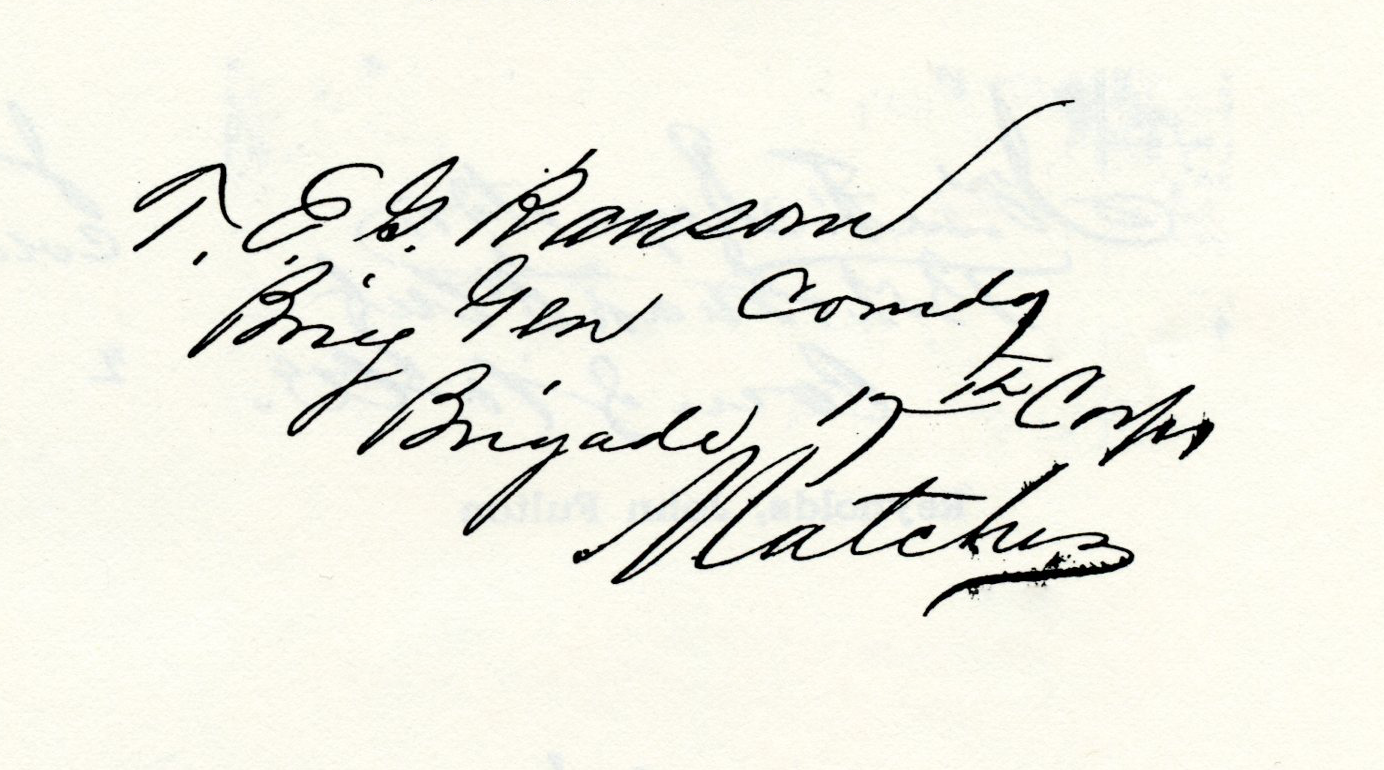 T. E. G. Ransom
Brig Gen Comdg
Brigade 17th Corps
Natchez